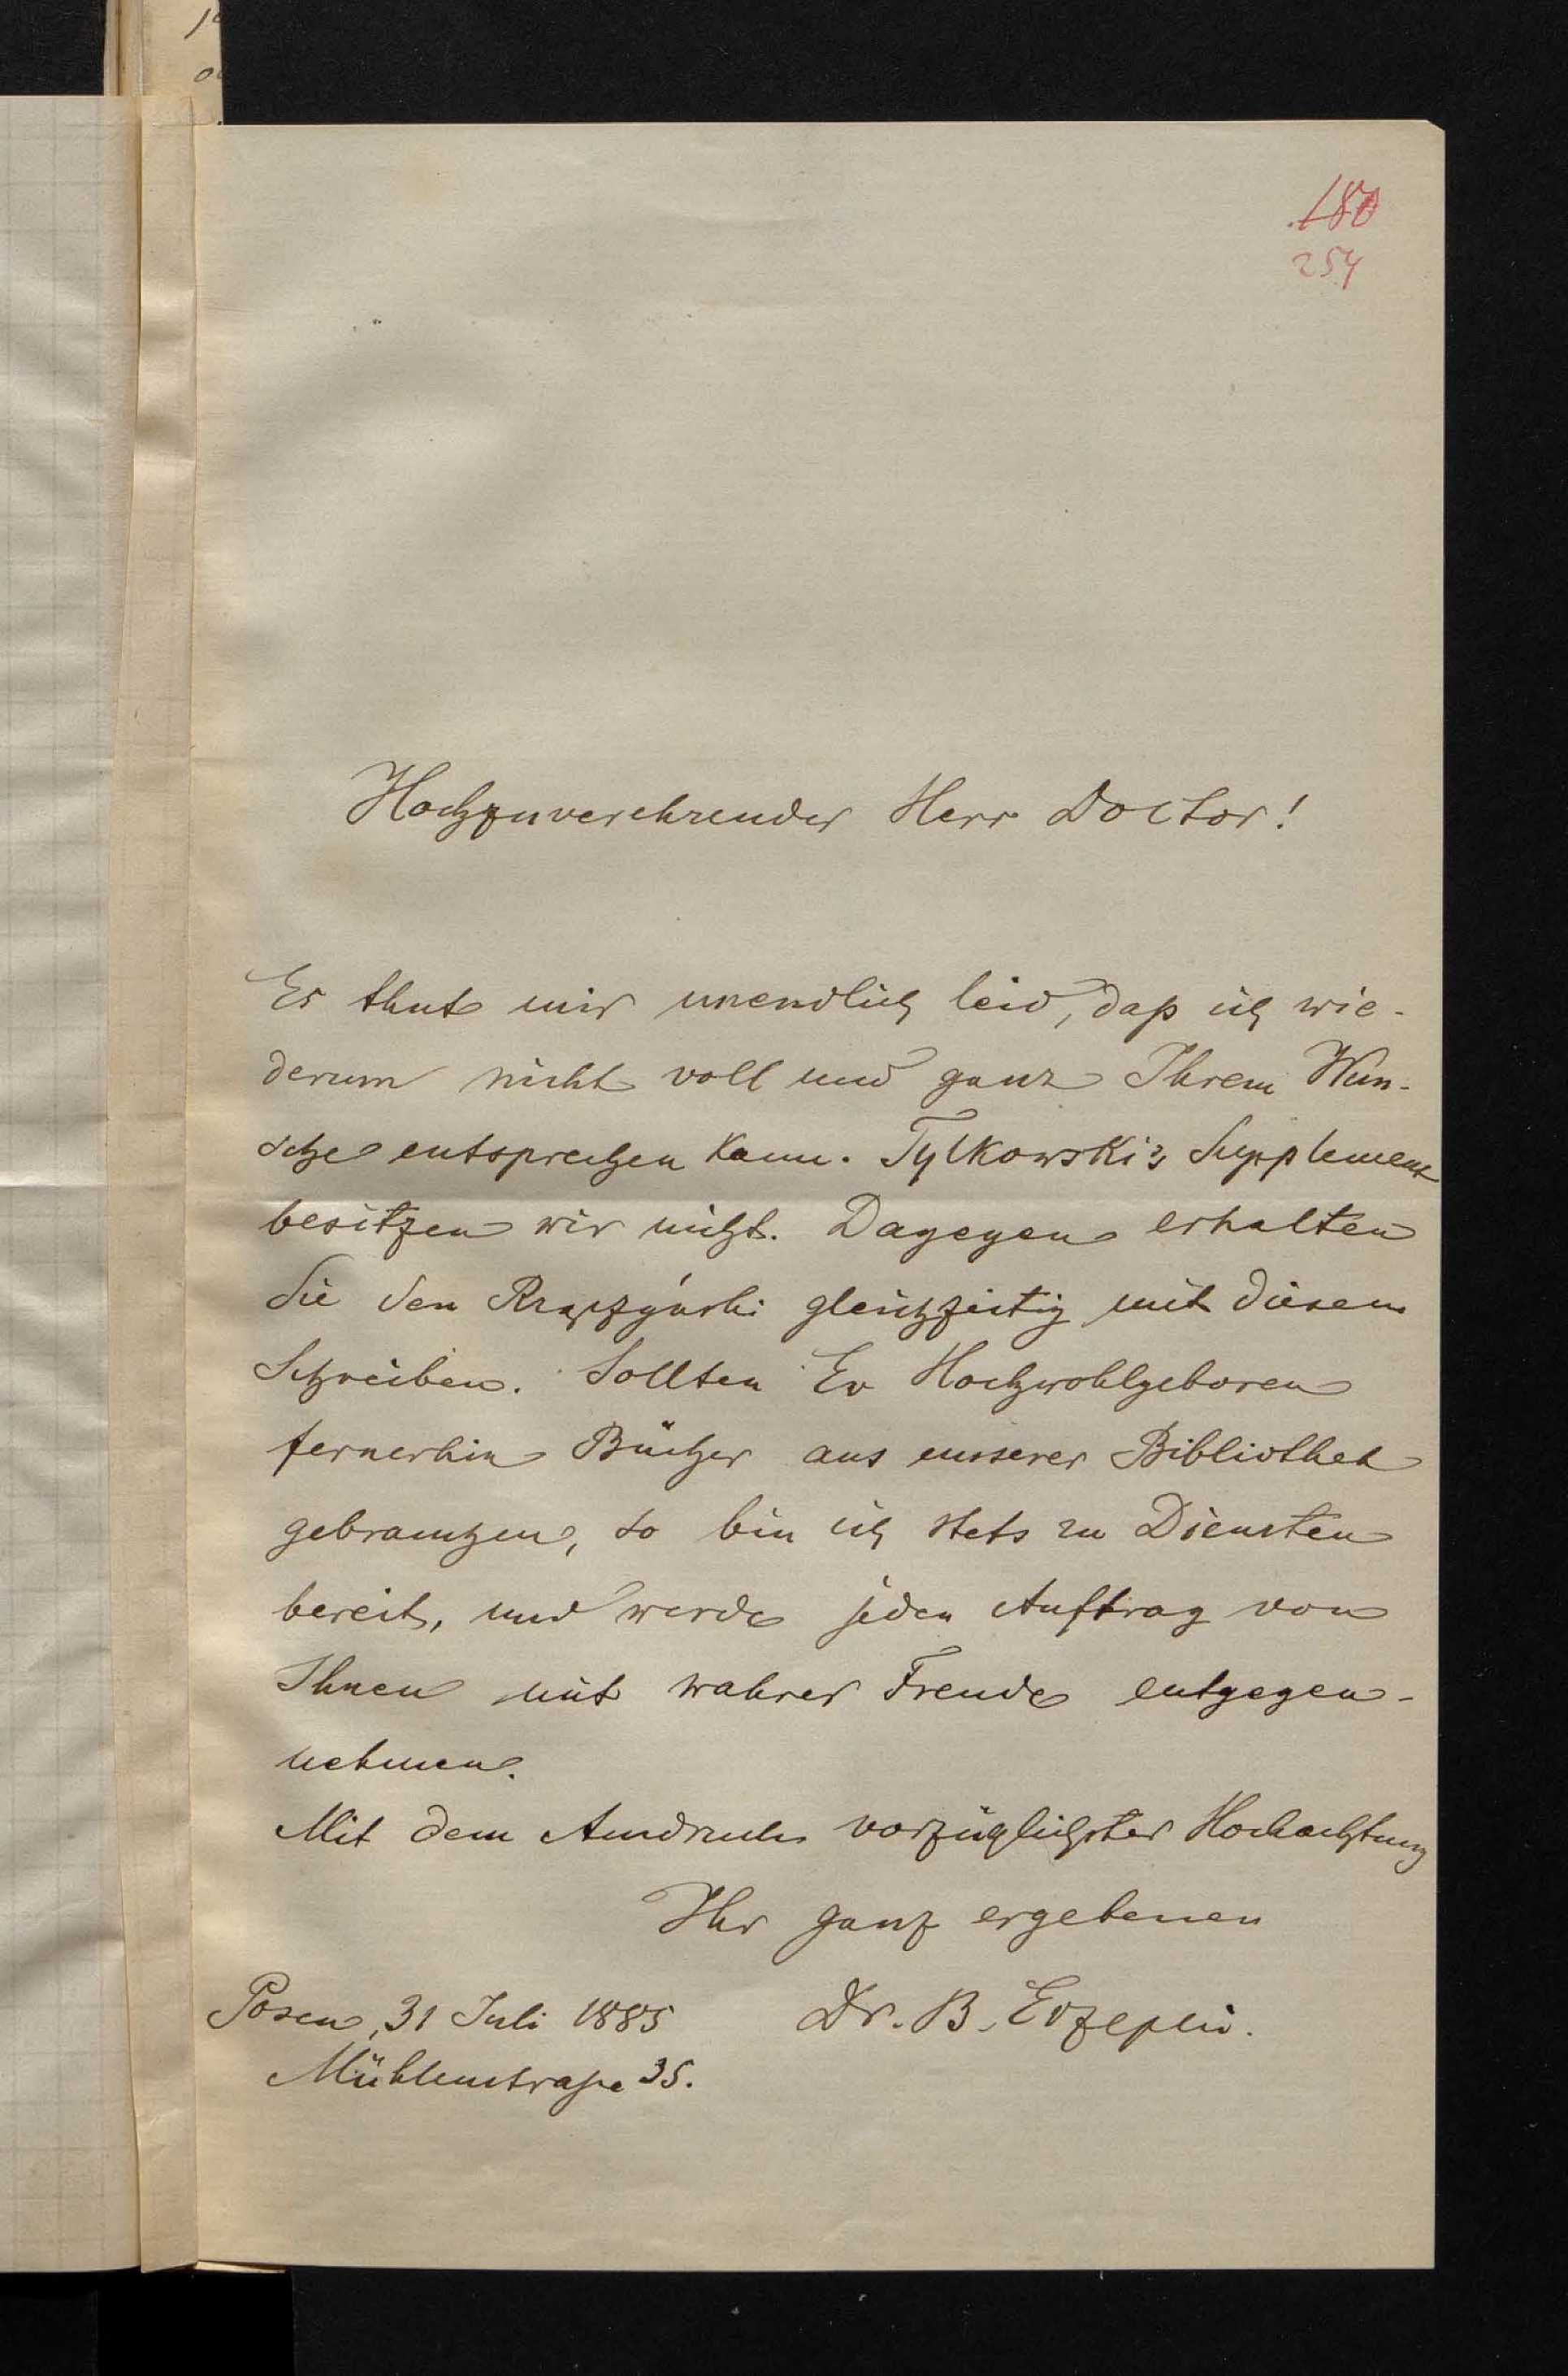 180
254
Hochzuverehrender Herr Doctor!
Es thut mir unendlich leid, daß ich wie-
derum nicht voll und ganz Ihrem Wun-
sche entsprechen kann. Tylkowski's Supplement
besitzen wir nicht. Dagegen erhalten
Sie den Rzączyński gleichzeitig mit diesem
Schreiben. Sollten Ew Hochwohlgeboren
fernerhin Bücher aus unserer Bibliothek
gebrauchen, so bin ich stets zu Diensten
bereit, und werde jeden Auftrag von
Ihnen mit wahrer Freude entgegen-
nehmen.
Mit dem Ausdruck vorzüglichster Hochachtung
Ihr ganz ergebenen
Posen, 31 Juli 1885 Dr. B. Erzepki.
Mühlenstraße 35.